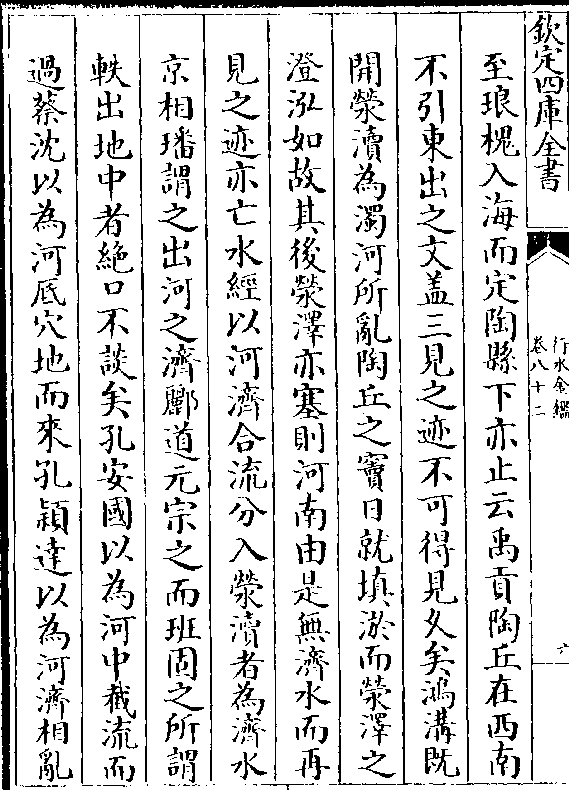 欽定四庫全書
行水金鑑
卷八十二
六
至琅槐入海而定陶縣下亦止云禹貢陶丘在西南
不引東出之文盖三見之迹不可得見久矣鴻溝既
開滎瀆為濁河所亂陶丘之竇日就填淤而滎澤之
澄泓如故其後滎澤亦塞則河南由是無濟水而再
見之迹亦亡水經以河濟合流分入滎瀆者為濟水
京相璠謂之出河之濟酈道元宗之而班固之所謂
軼出地中者絶口不談矣孔安國以為河中截流而
過蔡沈以為河底穴地而來孔穎達以為河濟相亂